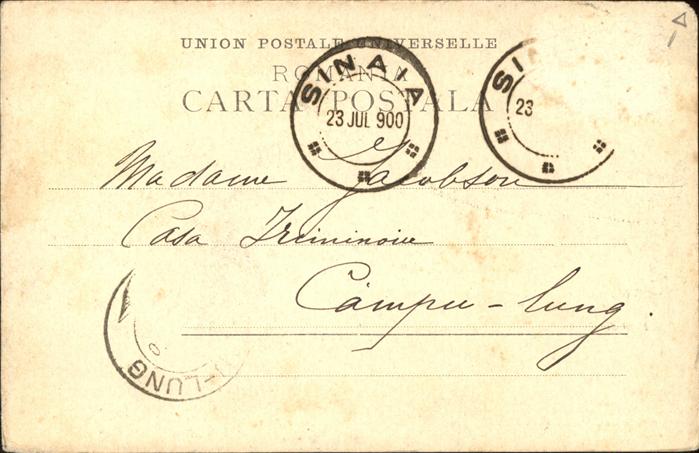 UNION POSTALE UNIVERSELLE
ROMANIA
CARTA POSTALA
SINAIA
23 JUL 900
SI
23
Madame Jacobson
Casa
Câmpu-lung.
-LUNG